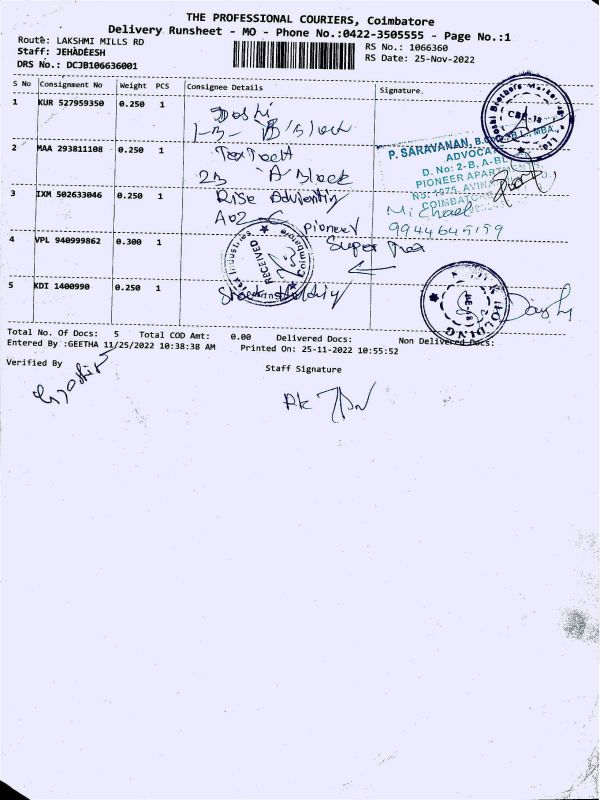 THE PROFESSIONAL COURIERS, Coimbatore
Delivery Runsheet - MO - Phone No.:0422-3505555 - Page No.:1
Route: LAKSHMI MILLS RD
RS No.: 1066360
Staff: JEHADEESH
RS Date: 25-Nov-2022
DRS No.: DCJB106636001
S No Consignment No Weight PCS Consignee Details Signature
1 KUR 527959350 0.250 1 Doshi
1-B- 'B' Block
2 MAA 293811108 0.250 1
2B 'A' Block
P. SARAVANAN,
ADVOCATE
D. No: 2-B, A-BL
PIONEER APARTMENT
No: 1075, AVINA
COIMBATORE
3 IXM 502633046 0.250 1 Rise
A02 Pioneer
Michael
9944645159
4 VPL 940999862 0.300 1 Super
RECEIVED
Coimbatore
5 KDI 1400990 0.250 1
HOLDING
Doshi
Total No. Of Docs: 5 Total COD Amt: 0.00 Delivered Docs: Non Delivered Docs:
Entered By :GEETHA 11/25/2022 10:38:38 AM Printed On: 25-11-2022 10:55:52
Verified By
Staff Signature